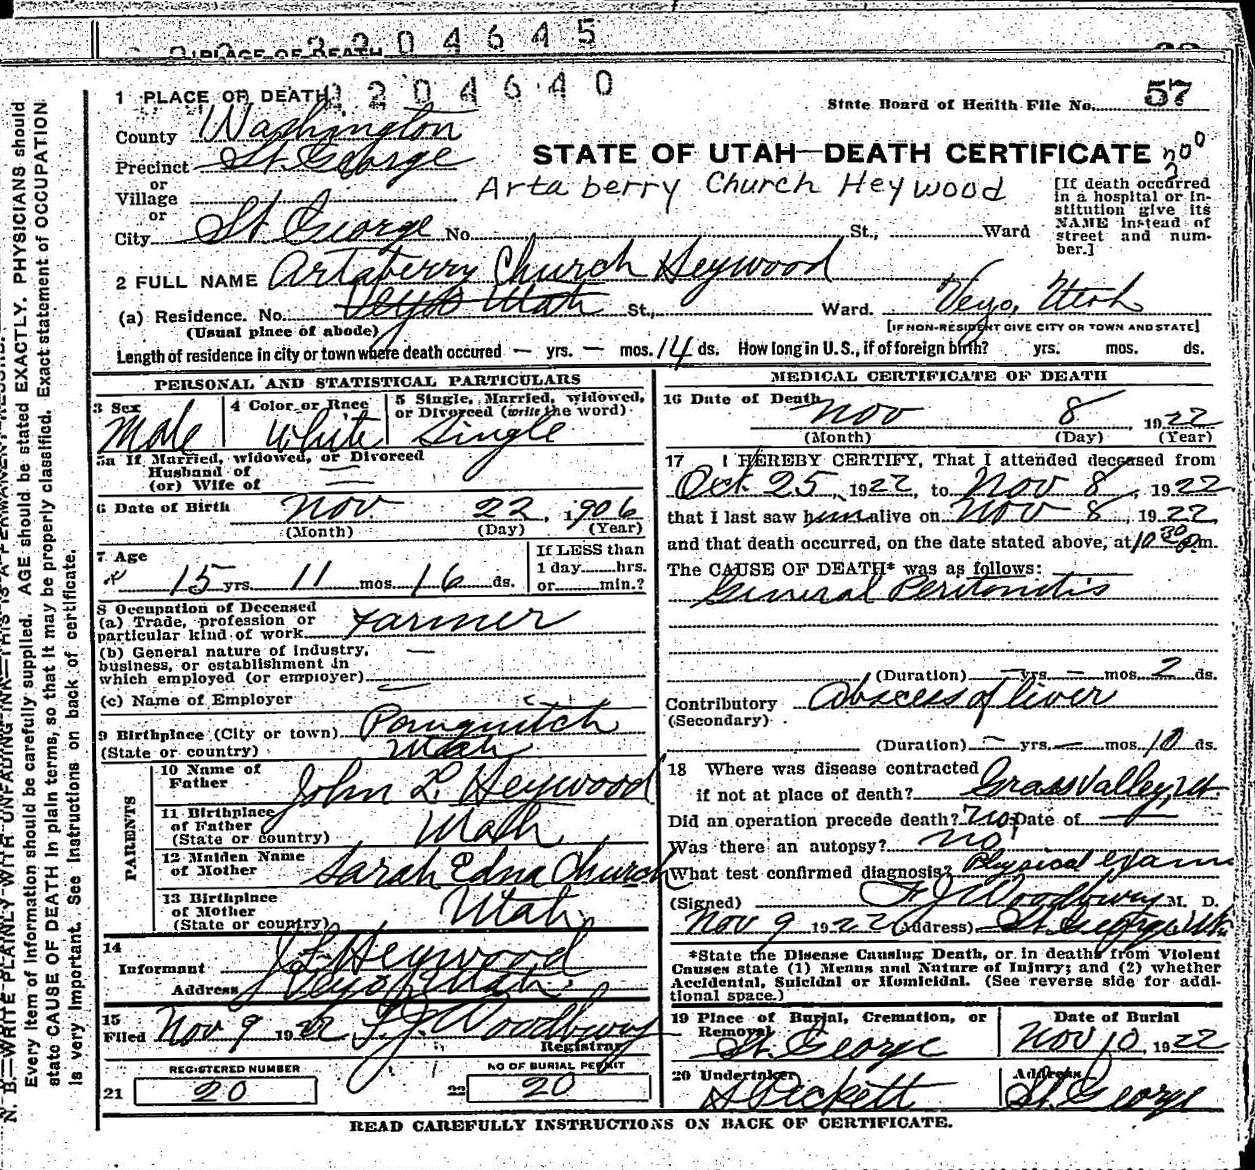 2204645
PLACE OF DEATH
2204640
1 PLACE OF DEATH
State Board of Health File No. 57
County Washington
Precinct St. George
or
Village
or
City St George No. St., Ward
STATE OF UTAH—DEATH CERTIFICATE
Artaberry Church Heywood
[If death occurred in a hospital or institution give its NAME instead of street and number.]
2 FULL NAME Artaberry Church Heywood
(a) Residence. No. Veyo Utah St., Ward. Veyo, Utah
(Usual place of abode) [IF NON-RESIDENT GIVE CITY OR TOWN AND STATE]
Length of residence in city or town where death occured — yrs. — mos. 14 ds. How long in U. S., if of foreign birth? yrs. mos. ds.
PERSONAL AND STATISTICAL PARTICULARS
3 Sex 4 Color or Race 5 Single, Married, widowed, or Divorced (write the word)
Male White Single
5a If Married, widowed, or Divorced
Husband of
(or) Wife of —
6 Date of Birth Nov 22, 1906
(Month) (Day) (Year)
7 Age If LESS than
15 yrs. 11 mos. 16 ds. 1 day hrs.
or min.?
8 Occupation of Deceased
(a) Trade, profession or
particular kind of work Farmer
(b) General nature of industry, —
business, or establishment in
which employed (or employer)
(c) Name of Employer
9 Birthplace (City or town) Panguitch
(State or country) Utah
PARENTS
10 Name of
Father John L. Heywood
11 Birthplace
of Father
(State or country) Utah
12 Maiden Name
of Mother Sarah Edna Church
13 Birthplace
of Mother
(State or country) Utah
14
Informant J L Heywood
Address Veyo Utah
15
Filed Nov 9 1922 F. J. Woodbury
Registrar
REGISTERED NUMBER NO OF BURIAL PERMIT
21 20 22 20
MEDICAL CERTIFICATE OF DEATH
16 Date of Death Nov 8 1922
(Month) (Day) (Year)
17 I HEREBY CERTIFY, That I attended deceased from
Oct. 25, 1922, to Nov 8, 1922
that I last saw him alive on Nov 8, 1922
and that death occurred, on the date stated above, at 10 30 P.m.
The CAUSE OF DEATH* was as follows:
General Peritonitis
(Duration) — yrs. — mos. 2 ds.
Contributory Abscess of liver
(Secondary)
(Duration) — yrs. — mos. 10 ds.
18 Where was disease contracted
if not at place of death? Grass Valley, Ut
Did an operation precede death? no Date of —
Was there an autopsy? no
What test confirmed diagnosis? Physical exam
(Signed) F J Woodbury M. D.
Nov 9 1922 (Address) St. George, Ut.
*State the Disease Causing Death, or in deaths from Violent
Causes state (1) Means and Nature of Injury; and (2) whether
Accidental, Suicidal or Homicidal. (See reverse side for addi-
tional space.)
19 Place of Burial, Cremation, or Removal Date of Burial
St. George Nov 10, 1922
20 Undertaker Address
St. George
READ CAREFULLY INSTRUCTIONS ON BACK OF CERTIFICATE.
N. B.—WRITE PLAINLY WITH UNFADING INK—THIS IS A PERMANENT RECORD.
Every item of information should be carefully supplied. AGE should be stated EXACTLY. PHYSICIANS should
state CAUSE OF DEATH in plain terms, so that it may be properly classified. Exact statement of OCCUPATION
is very important. See instructions on back of certificate.